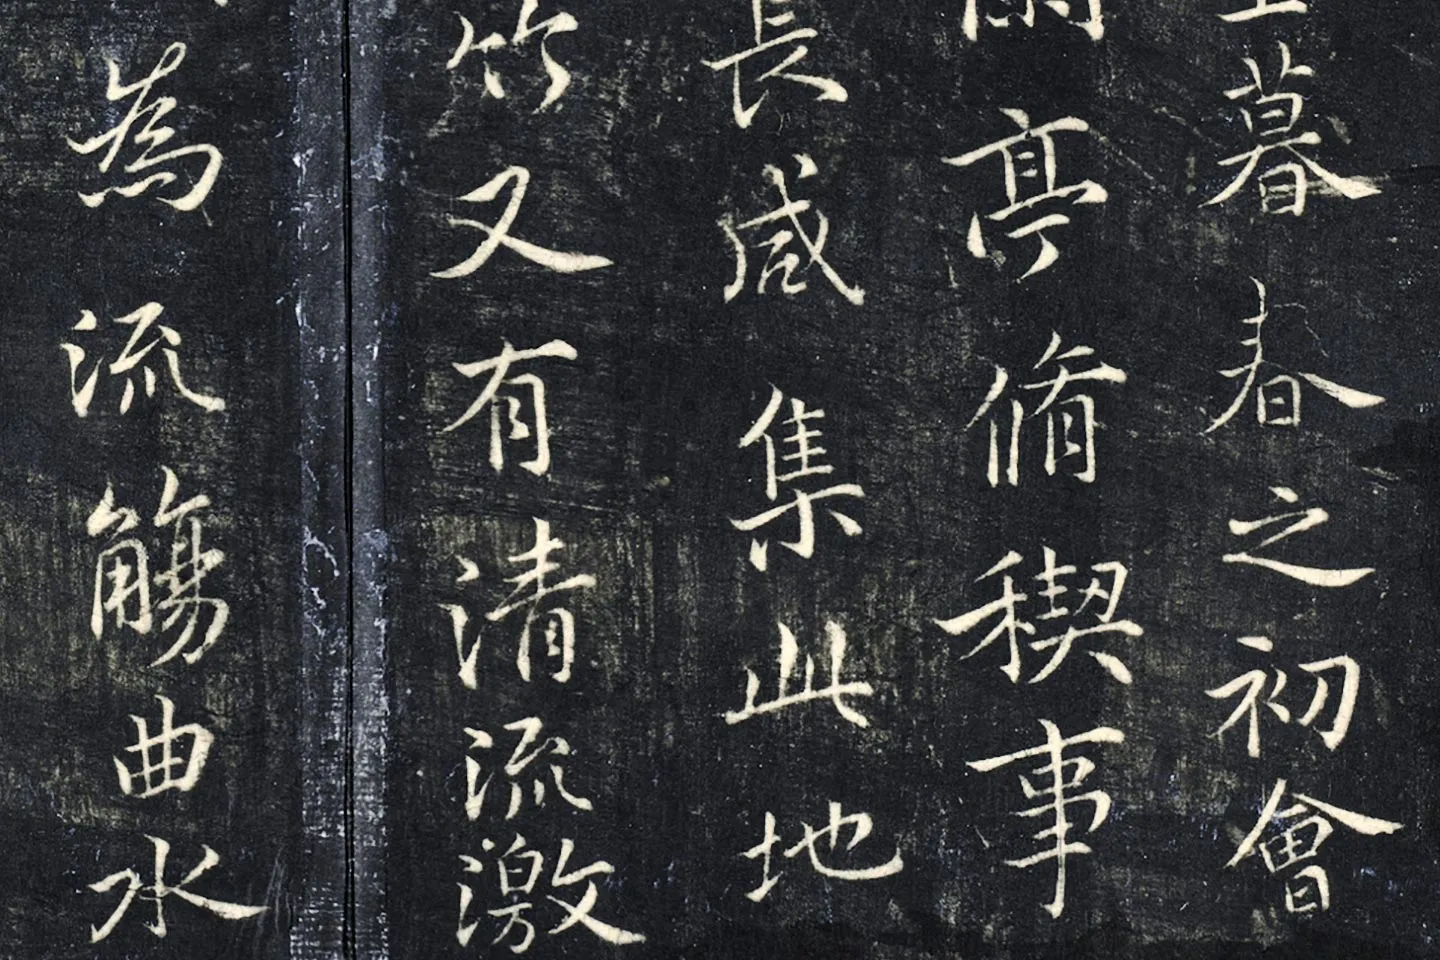 暮春之初會
亭脩稧事
長咸集此地
竹又有清流激
為流觴曲水